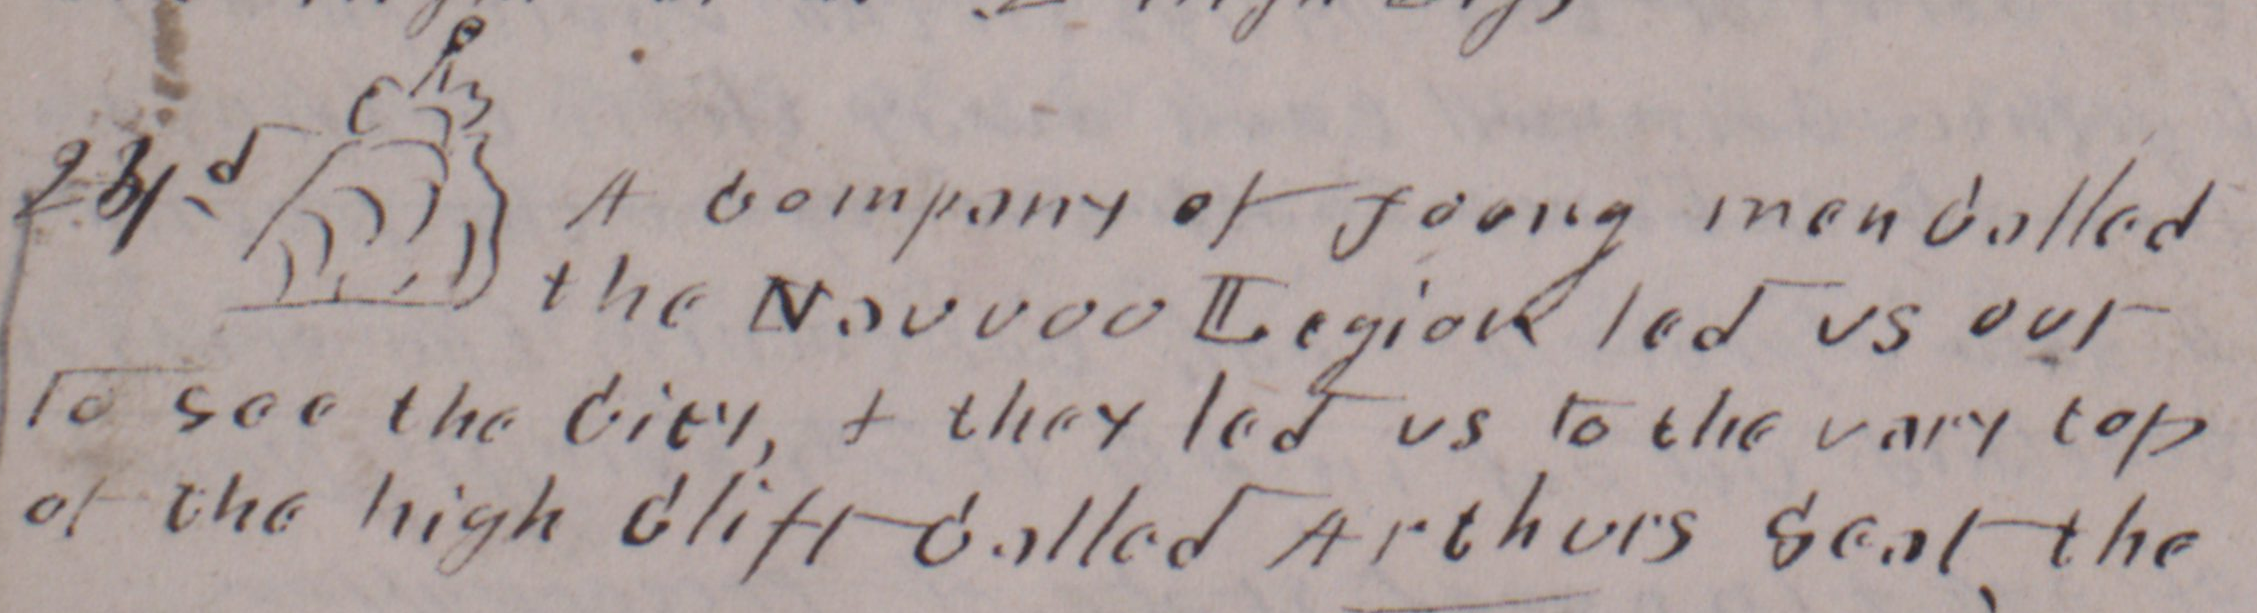 24d A company of young men called
the Nauvoo Legion led us out
to see the City, & they led us to the vary top
of the high Clift Called Arthurs Seat, the